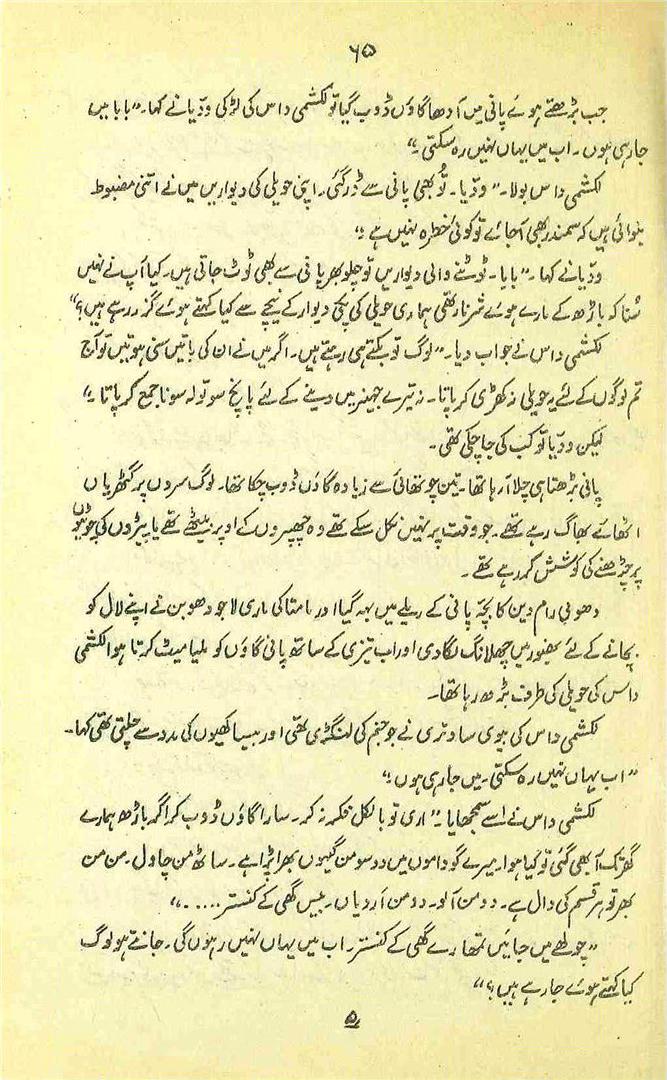 ۶۵
جب بڑھتے ہوئے پانی میں آدھا گاؤں ڈوب گیا تو لکشمی داس کی لڑکی ودّیا نے کہا۔ ”بابا میں
جا رہی ہوں۔ اب میں یہاں نہیں رہ سکتی۔“
لکشمی داس بولا۔ ”ودّیا۔ تُو بھی پانی سے ڈر گئی۔ اپنی حویلی کی دیواریں میں نے اتنی مضبوط
بنوائی ہیں کہ سمندر بھی آ جائے تو کوئی خطرہ نہیں ہے۔“
ودّیا نے کہا۔ ”بابا۔ ٹوٹنے والی دیواریں تو چلو بھر پانی سے بھی ٹوٹ جاتی ہیں۔ کیا آپ نے نہیں
سُنا کہ باڑھ کے مارے ہوئے شرنارتھی ہماری حویلی کی پچھلی دیوار کے نیچے سے کیا کہتے ہوئے گزر رہے ہیں؟“
لکشمی داس نے جواب دیا۔ ”لوگ تو بکتے ہی رہتے ہیں۔ اگر میں نے ان کی باتیں سنی ہوتیں تو آج
تم لوگوں کے لئے یہ حویلی نہ کھڑی کر پاتا۔ نہ تیرے جہیز میں دینے کے لئے پانچ سو تولہ سونا جمع کر پاتا۔“
لیکن ودّیا تو کب کی جا چکی تھی۔
پانی بڑھتا ہی چلا آ رہا تھا۔ تین چوتھائی سے زیادہ گاؤں ڈوب چکا تھا۔ لوگ سروں پر گٹھریاں
اٹھائے بھاگ رہے تھے۔ جو وقت پر نہیں نکل سکے تھے وہ چھپروں کے اوپر بیٹھے تھے یا پیڑوں کی چوٹیوں
پر چڑھنے کی کوشش کر رہے تھے۔
دھوبی رام دین کا بچّہ پانی کے ریلے میں بہہ گیا اور مامتا کی ماری لاجو دھوبن نے اپنے لال کو
بچانے کے لئے بھنور میں چھلانگ لگا دی اور اب تیزی کے ساتھ پانی گاؤں کو ملیا میٹ کرتا ہوا لکشمی
داس کی حویلی کی طرف بڑھ رہا تھا۔
لکشمی داس کی بیوی ساوتری نے جو جنم کی لنگڑی تھی اور بیساکھیوں کی مدد سے چلتی تھی کہا۔
”اب یہاں نہیں رہ سکتی۔ میں جا رہی ہوں۔“
لکشمی داس نے اسے سمجھایا۔ ”اری تو بالکل فکر نہ کر۔ سارا گاؤں ڈوب کر اگر باڑھ ہمارے
گھر تک آ بھی گئی تو کیا ہوا۔ میرے گوداموں میں دو سو من گیہوں بھرا پڑا ہے۔ ساٹھ من چاول۔ من من
بھر تو ہر قسم کی دال ہے۔ دو من آلو۔ دو من اردیاں۔ بیس گھی کے کنستر ....۔“
”چولھے میں جائیں تمھارے گھی کے کنستر۔ اب میں یہاں نہیں رہوں گی۔ جانتے ہو لوگ
کیا کہتے ہوئے جا رہے ہیں؟“
۵